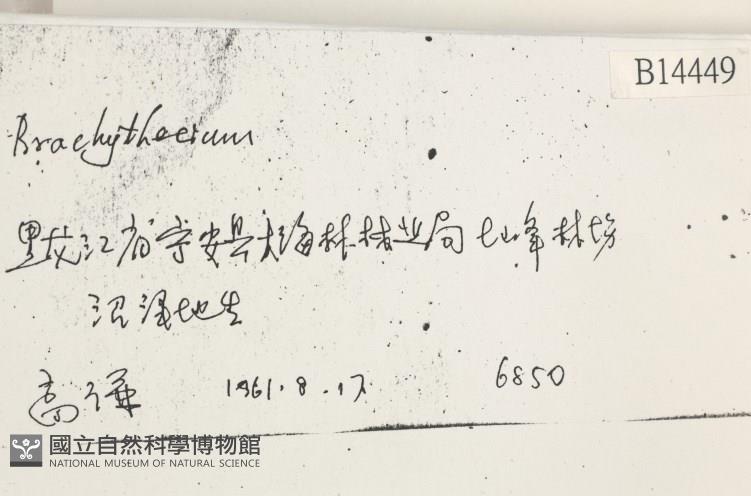 B14449
Brachythecium
黑龙江省宁安县大海林林业局七峰林场
沼湿地生
高谦 1961.8.17 6850
國立自然科學博物館
NATIONAL MUSEUM OF NATURAL SCIENCE